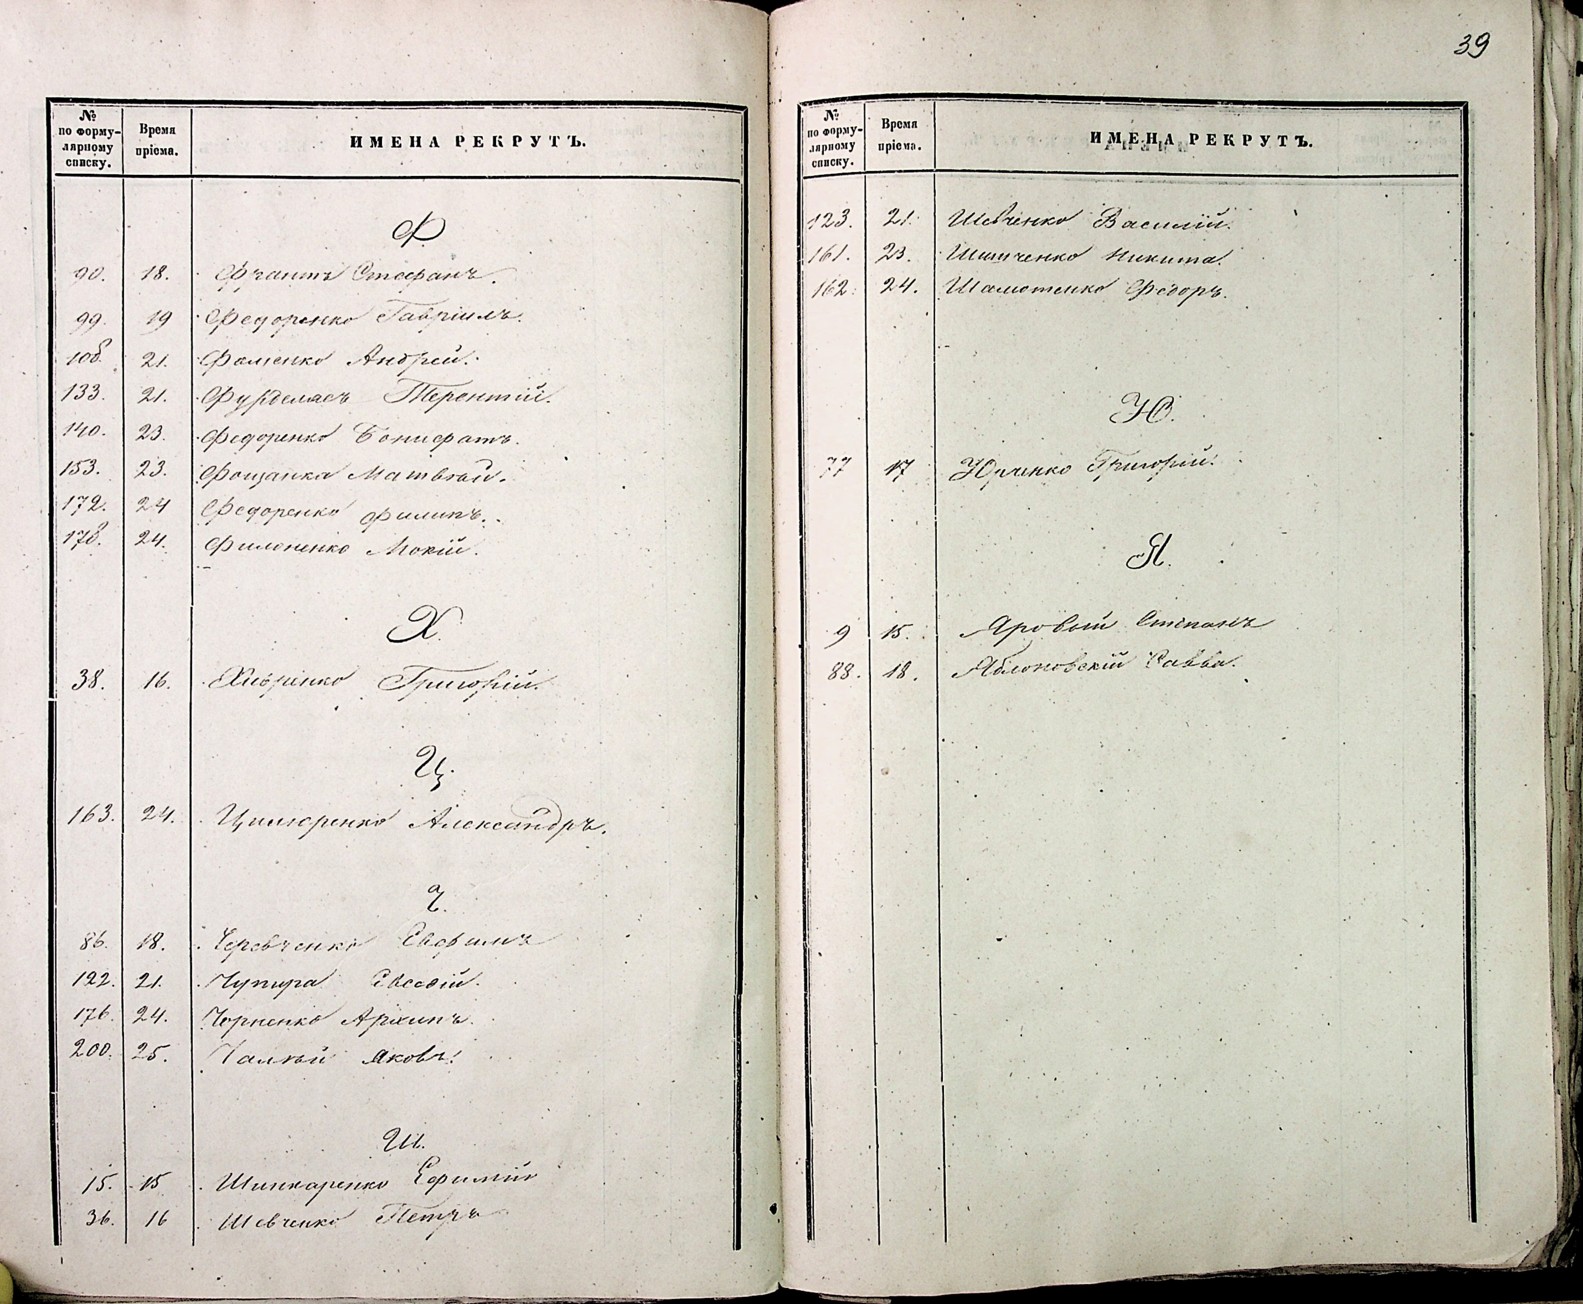 39
№ по форму-лярному списку. Время пріема. ИМЕНА РЕКРУТЪ.
Ф
90. 18. Франтъ Стефанъ.
99. 19 Федоренко Гавріилъ.
108. 21. Фоменко Андрей.
133. 21. Терентій.
140. 23. Федоренко Бонифатъ.
153. 23. Фощанка Матвѣй.
172. 24 Федоренко Филипъ.
178. 24. Филоненко Мокій.
Х
38. 16. Григорій.
Ц
163. 24. Циморенко Александръ.
Ч
86. 18. Черевченко
122. 21. Чупира Евсевій.
176. 24. Чорненко Архипъ.
200. 25. Чалый Яковъ.
Ш.
15. 15 Шинкаренко Ефимій
36. 16 Шевченко Петръ
№ по форму-лярному списку. Время пріема. ИМЕНА РЕКРУТЪ.
123. 21. Шевченко Василій.
161. 23. Никита.
162. 24. Шамотенко Федоръ.
Ю.
77 17 Юрченко Григорій.
Я.
9 15. Яровый Степанъ
88. 18. Яблоновскій Савва.